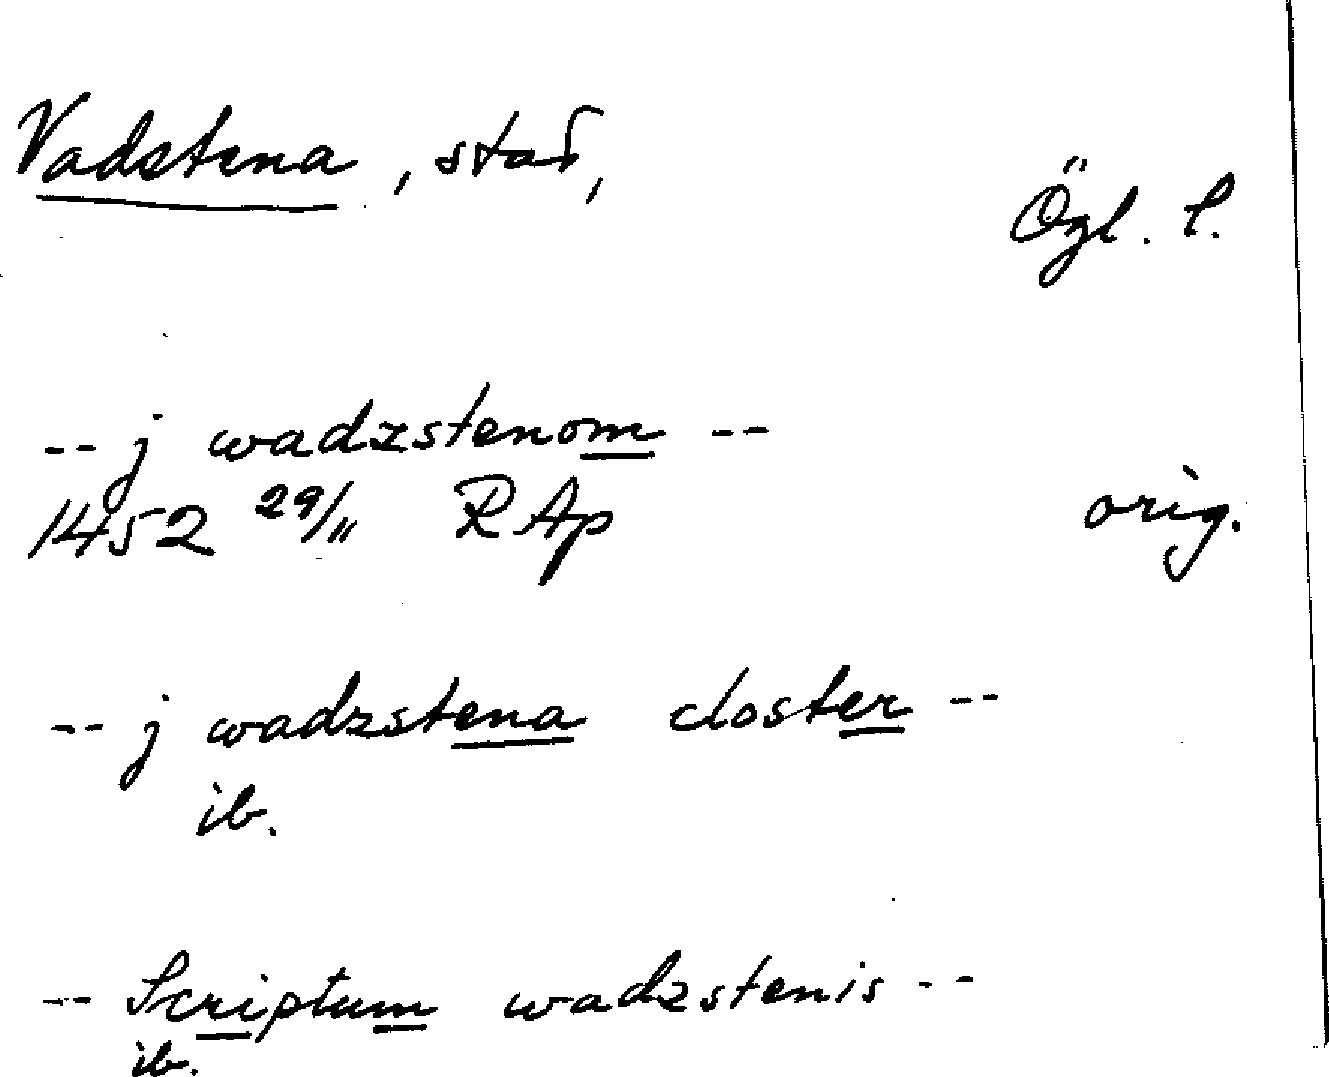 Vadstena, stad,
Ögl. l.
-- j wadzstenom --
1452 29/11 RAp orig.
-- j wadzstena closter --
ib.
-- Scriptum wadzstenis --
ib.